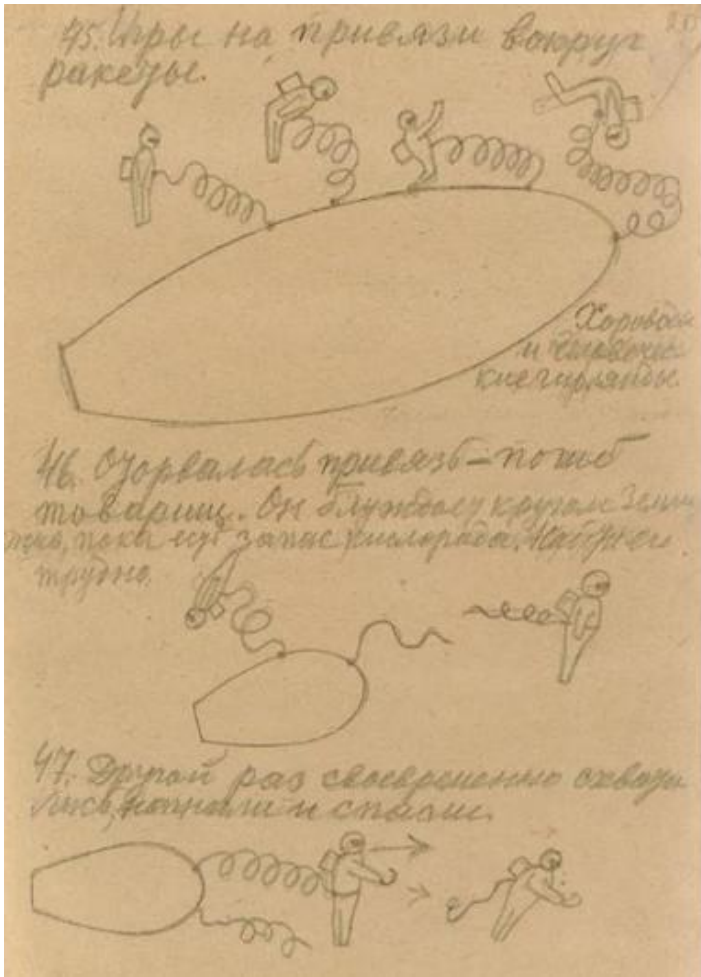 45. Игры на привязи вокруг
ракеты.
Хороводы
и человечес
кие гирлянды.
46. Оторвалась привязь – погиб
товарищ. Он блуждает кругом Земли
пока есть запас кислорода.
трудно.
47. Другой раз своевременно схвати
лись, нагнали и спасли.